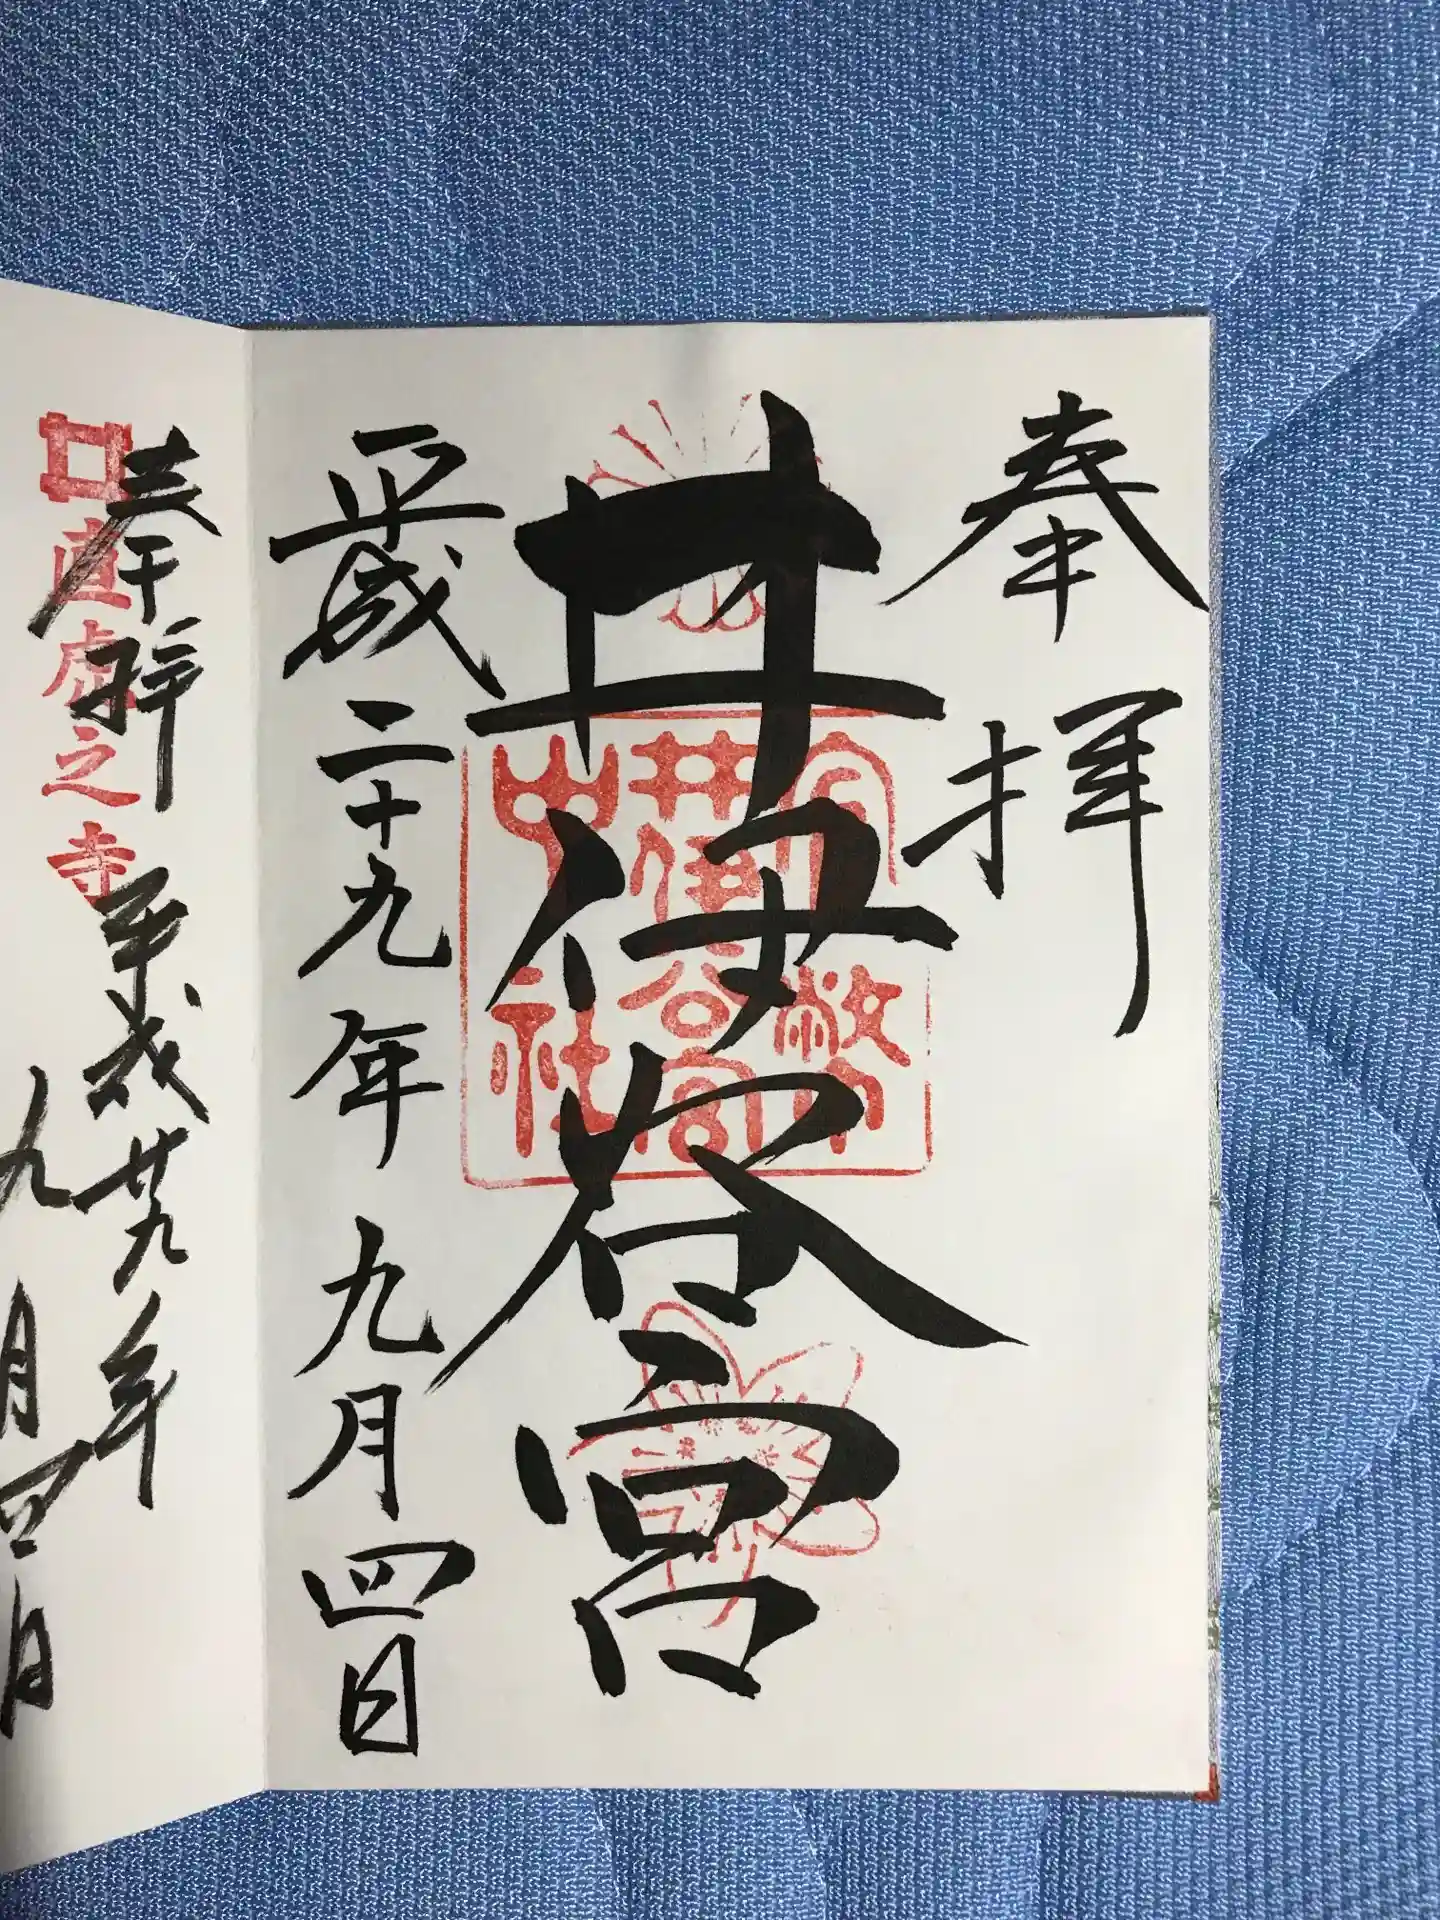 奉拝
井伊谷宮
官幣中社
井伊谷宮
平成二十九年九月四日
直虎之寺
奉拝
平成廿九年
九月四日